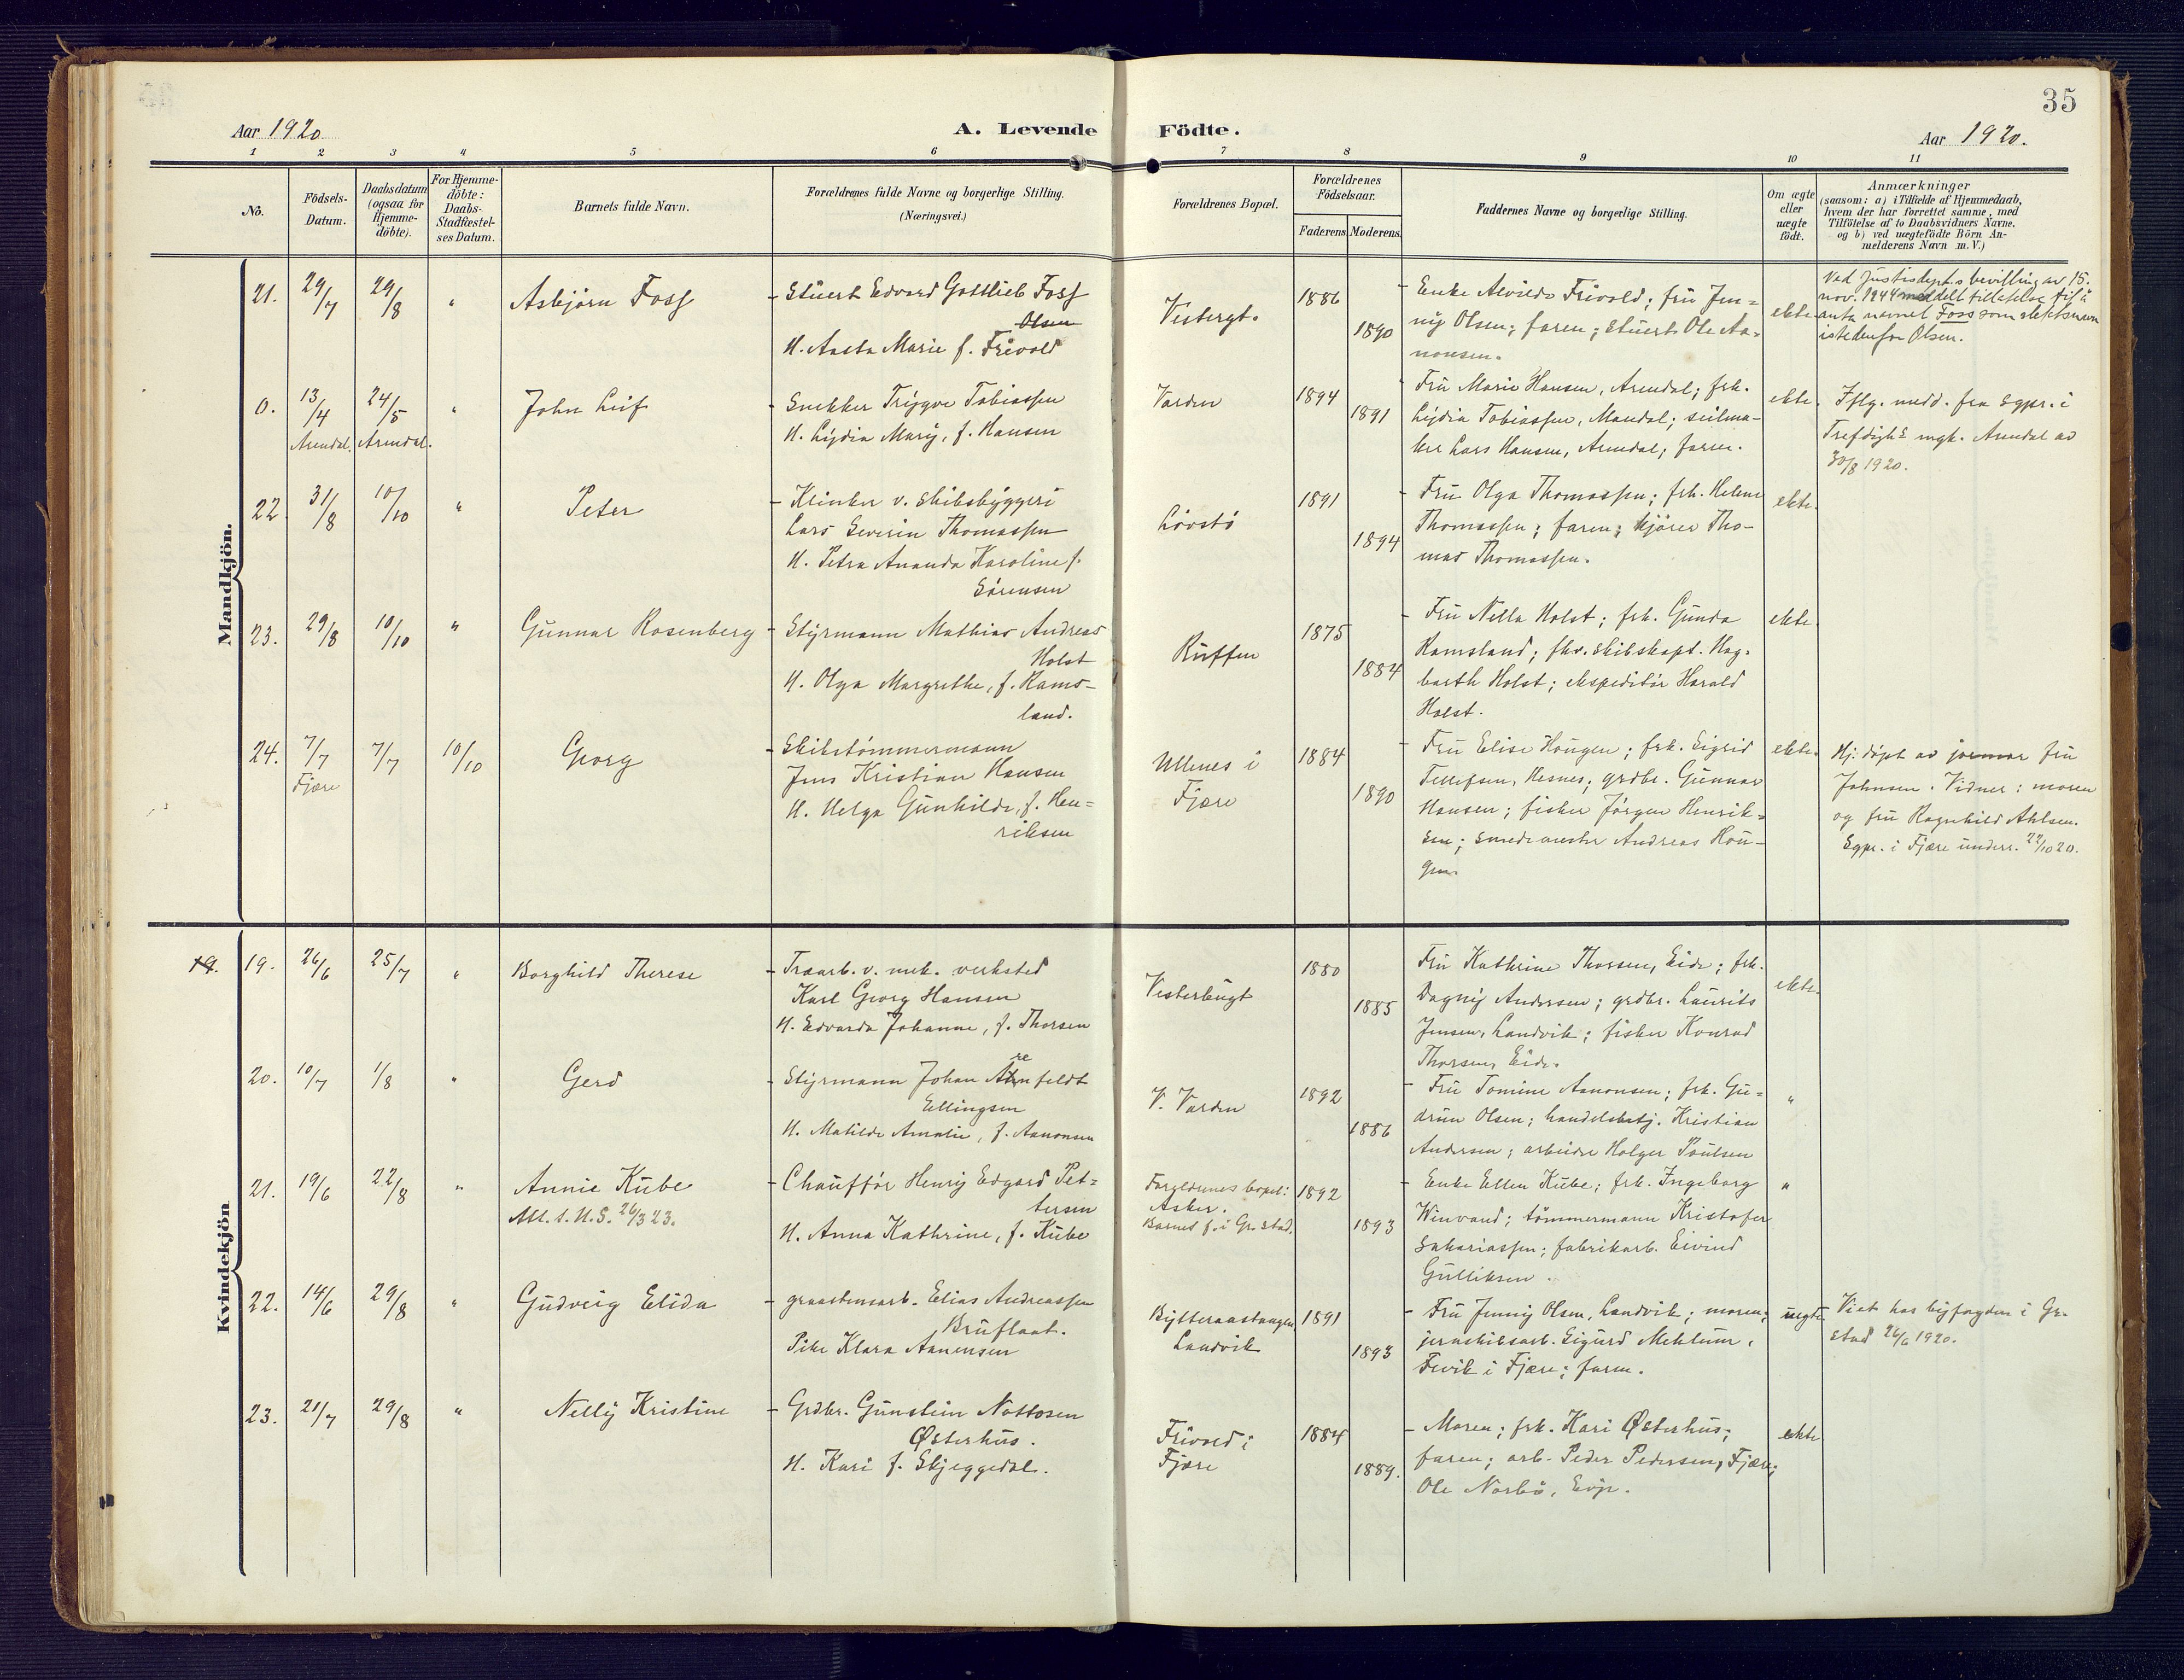 35
Aar 1920.
A. Levende Födte.
Aar 1920.
1 2 3 4 5 6 7 8 9 10 11
No.
Födsels-
Datum.
Daabsdatum
(ogsaa for
Hjemme-
döbte).
For Hjemme-
döbte:
Daabs-
Stadfæstel-
ses Datum.
Barnets fulde Navn.
Forældrenes fulde Navne og borgerlige Stilling.
(Næringsvei.)
Forældrenes Bopæl.
Forældrenes
Födselsaar.
Faderens. Moderens.
Faddernes Navne og borgerlige Stilling.
Om ægte
eller
uægte
födt.
Anmærkninger
(saasom: a) i Tilfælde af Hjemmedaab,
hvem der har forrettet samme, med
Tilföielse af to Daabsvidners Navne,
og b) ved uægtefödte Börn An-
melderens Navn m. V.)
Mandkjön.
21. 29/7 29/8 "
Asbjørn Foss
- Stuert Edvard Gottlieb Foss
Olsen
H. Aasta Marie f. Frivold
Vestergt.
1886
1890
- Enke Alvilde Frivold; fru Jen-
ny Olsen; faren; stuert Ole Aa-
nonsen.
ekte
Ved Justisdept.s bevilling av 15.
nov. 1944 meddelt tillatelse til å
anta navnet Foss som slektsnavn
istedenfor Olsen.
0. 13/4 24/5 "
Arendal. Arendal.
John Leif
- Snekker Trygve Tobiassen
H. Lydia Mary, f. Hansen
Varden
1894
1891
- Fru Marie Hansen, Arendal; frk.
Lydia Tobiassen, Mandal; seilma-
ker Lars Hansen, Arendal; faren.
ekte.
Iflg. medd. fra sgpr. i
Trefoldighs mgh. Arendal av
30/8 1920.
22 31/8 10/10 "
Peter
- Klinker v. skibsbyggeri
Lars Severin Thomassen
H. Petra Ananda Karoline f.
Sørensen
Løvstø
1891
1894
- Fru Olga Thomassen; frk. Helene
Thomassen; faren; kjører Tho-
mas Thomassen.
ekte.
23. 29/8 10/10 "
Gunnar Rosenberg
- Styrmann Mathias Andreas
Holst
H. Olga Margrethe, f. Rams-
land.
Ruffen
1875
1884
- Fru Nella Holst; frk. Gunda
Ramsland; fhv. skibskapt. Hag-
barth Holst; ekspeditør Harald
Holst.
ekte.
24. 7/7 7/7 10/10
Fjære
Georg
- Skibstømmermann
Jens Kristian Hansen
H. Helga Gunhilde, f. Hen-
riksen
Ullenes i
Fjære
1884
1890
- Fru Elise Hougen; frk. Sigrid
Tellefsen, Hesnes; grdbr. Gunnar
Hansen; fisker Jørgen Henrik-
sen; smedmester Andreas Hou-
gen.
ekte.
Hj: døpt av jormor fru
Johnsen. Vidner: moren
og fru Ragnhild Ahlsen.
Sgpr. i Fjære underr. 22/10 20.
Kvindekjön
19. 19. 26/6 25/7 "
Borghild Therese
- Træarb. v. mek. verksted
Karl Georg Hansen
H. Edvarda Johanne, f. Thorsen
Vesterbugt
1880
1885
Fru Kathrine Thorsen, Eide; frk.
Dagny Andersen; grdbr. Laurits
Jensen, Landvik; fisker Konrad
Thorsen, Eide.
ekte.
20. 10/7 1/8 "
Gerd
- Styrmann Johan Arenfeldt
Ellingsen
H. Matilde Amalie, f. Aanonsen
V. Varden
1892
1886
- Fru Tomine Aanonsen; frk. Gu-
drun Olsen; handelsbetj. Kristian
Andersen; arbeider Holger Poulsen
"
21. 19/6 22/8 "
Annie Kube
Att. t. U.S. 26/3 23.
- Chauffør Henry Edgard Pet-
tersen
H. Anna Kathrine, f. Kube
Forældrenes bopæl:
Asker.
Barnet f. i Gr.stad.
1892
1893
- Enke Ellen Kube; frk. Ingeborg
Winvand; tømmermann Kristofer
Sakariassen; fabrikarb. Eivind
Gulliksen.
"
22. 14/6 29/8 "
Gudveig Elida
- graastensarb. Elias Andreassen
Bruflaat.
Pike Klara Aanensen
Landvik
1891
1893
- Fru Jenny Olsen, Landvik; moren;
jernskibsarb. Sigurd Mehlum,
Fevik i Fjære; faren.
uegte
Vist hos byfogden i Gr.
stad 26/6 1920.
23. 21/7 29/8 "
Nelly Kristine
- Grdbr. Gunstein Nottosen
Østerhus.
H. Kari f. Skjeggedal.
Frivold i
Fjære
1884
1889.
- Moren; frk. Kari Østerhus;
faren; arb. Peder Pedersen, Fjære;
Ole Norbø, Evje.
ekte